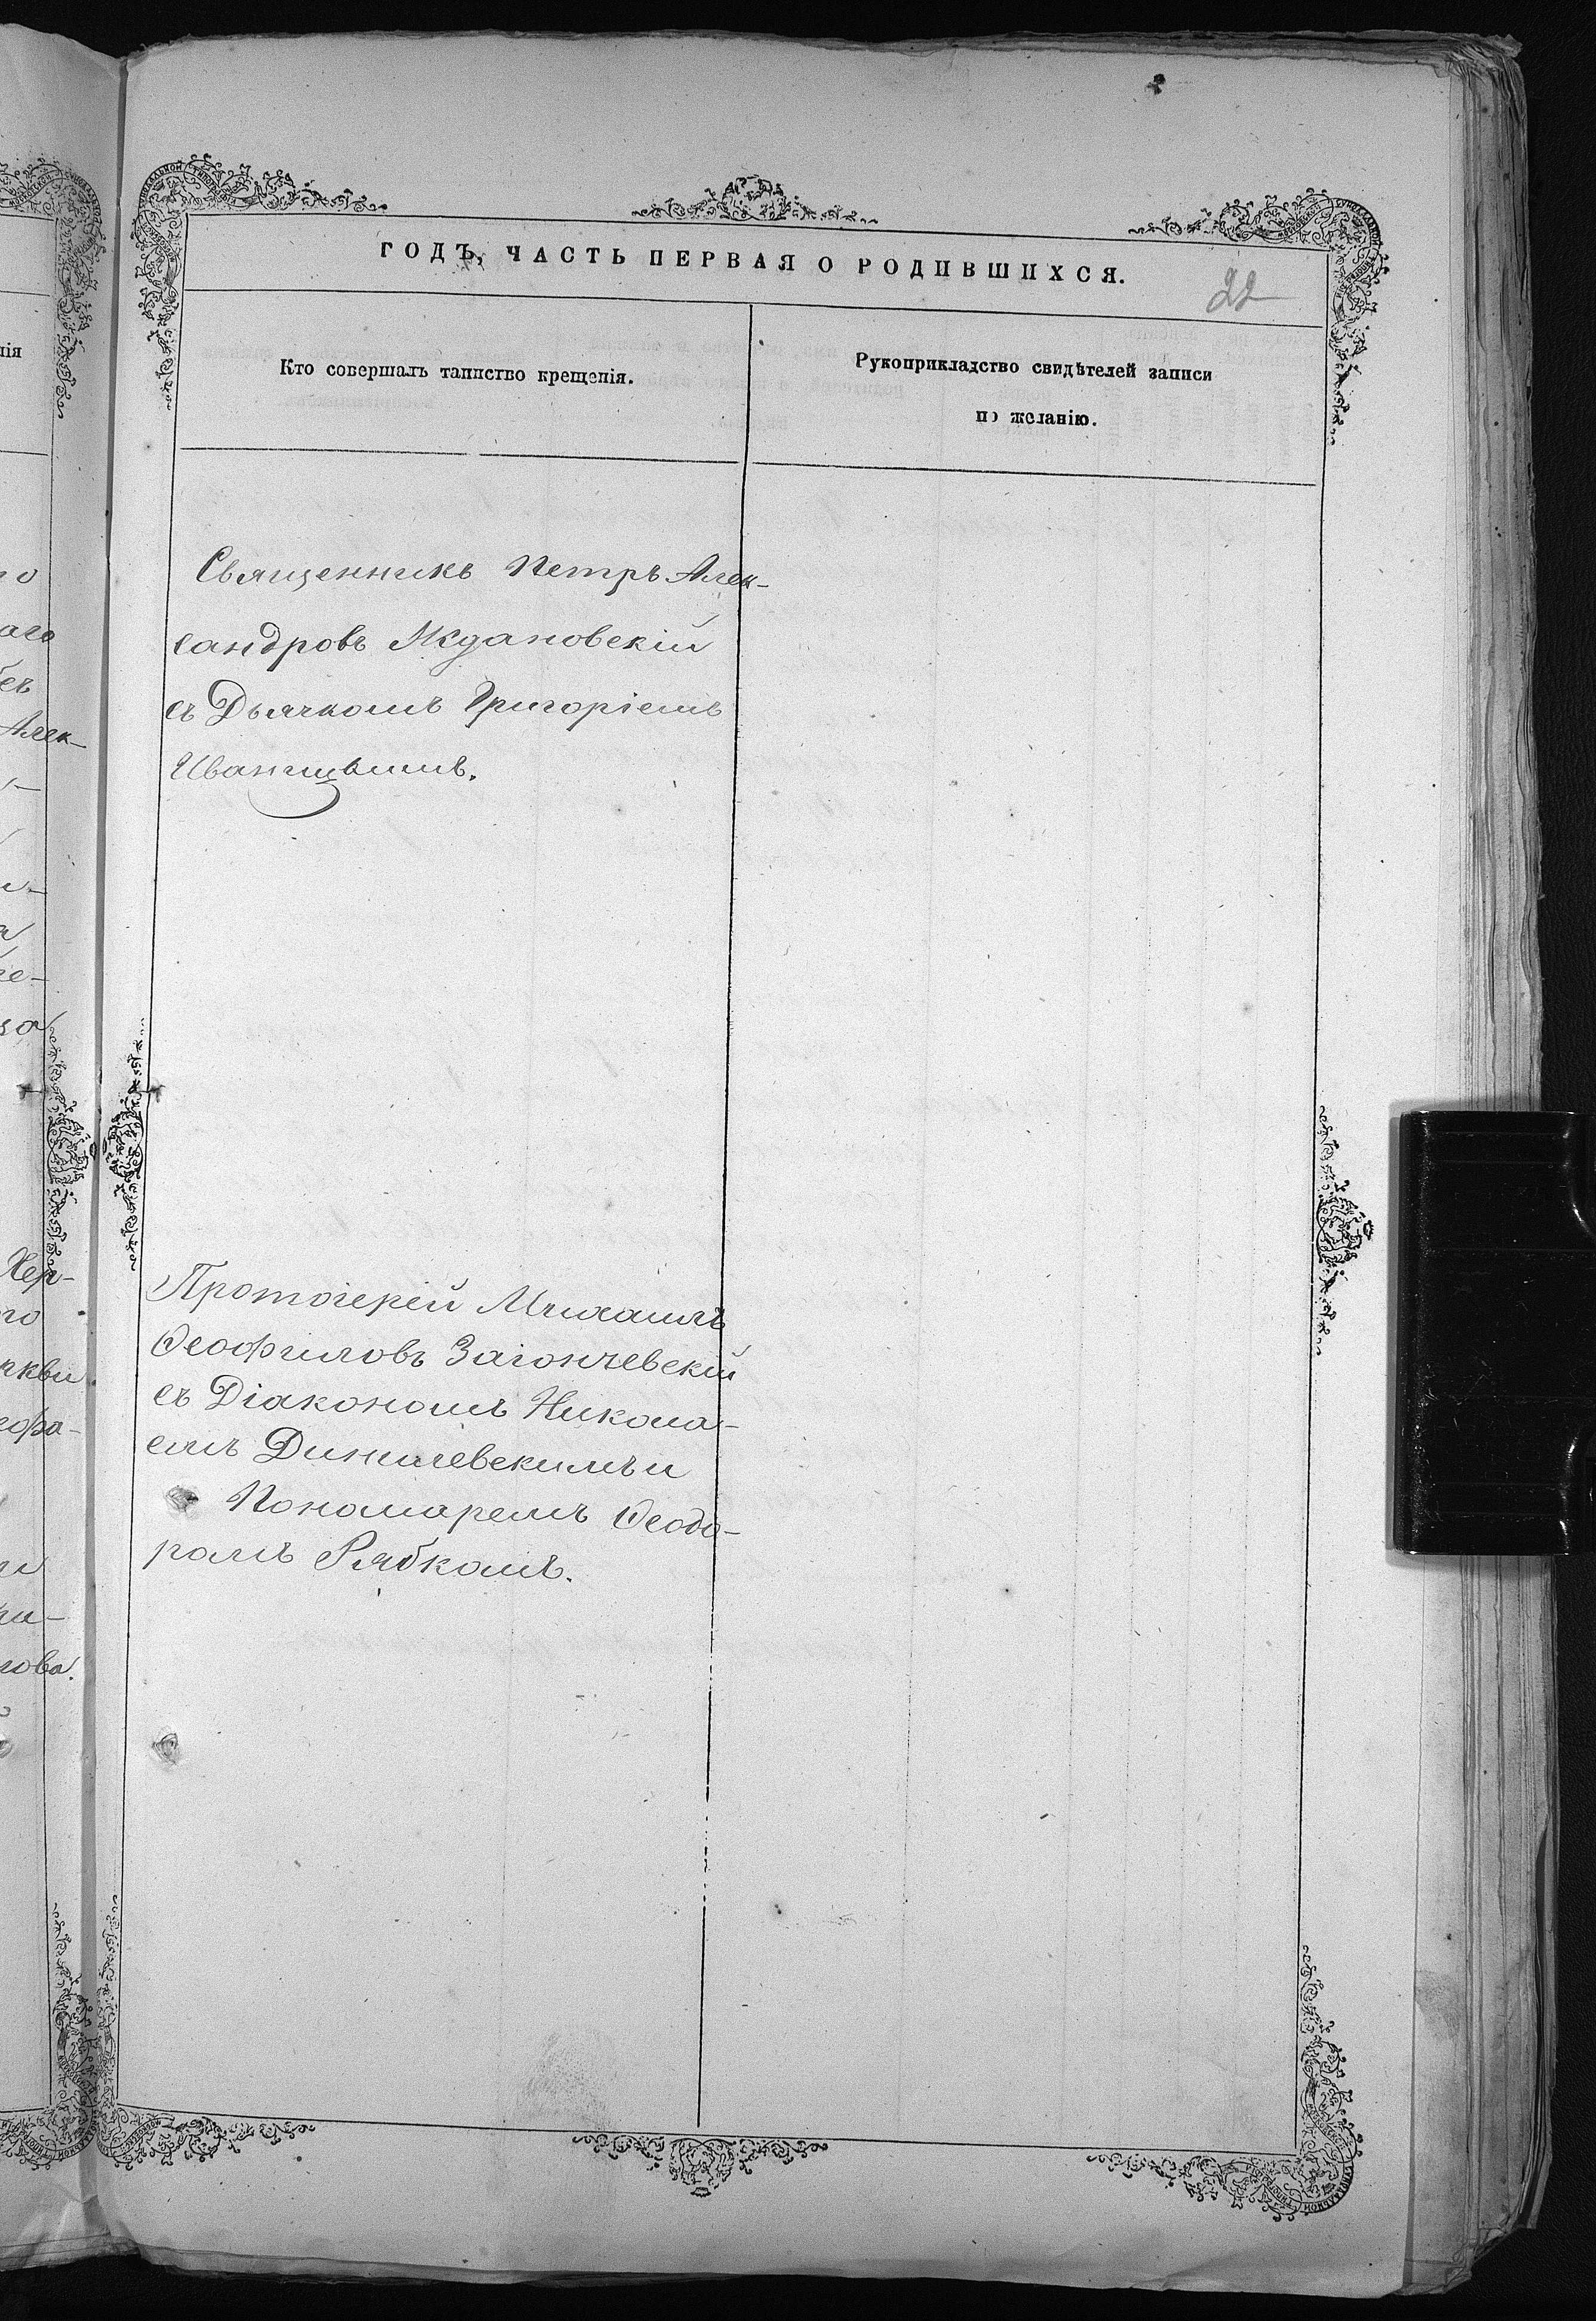 ГОДЪ, ЧАСТЬ ПЕРВАЯ О РОДИВШИХСЯ.
22
Кто совершалъ таинство крещенія.
Рукоприкладство свидѣтелей записи
по желанію.
Священникъ Петръ Алек-
сандровъ Ждановскій
съ Дьячкомъ Григоріемъ
Иваницкимъ.
Протоіерей Михаилъ
Ѳеофиловъ Загончевскій
съ Діакономъ Никола-
емъ
Пономаремъ Ѳеодо-
ромъ Рябкомъ.